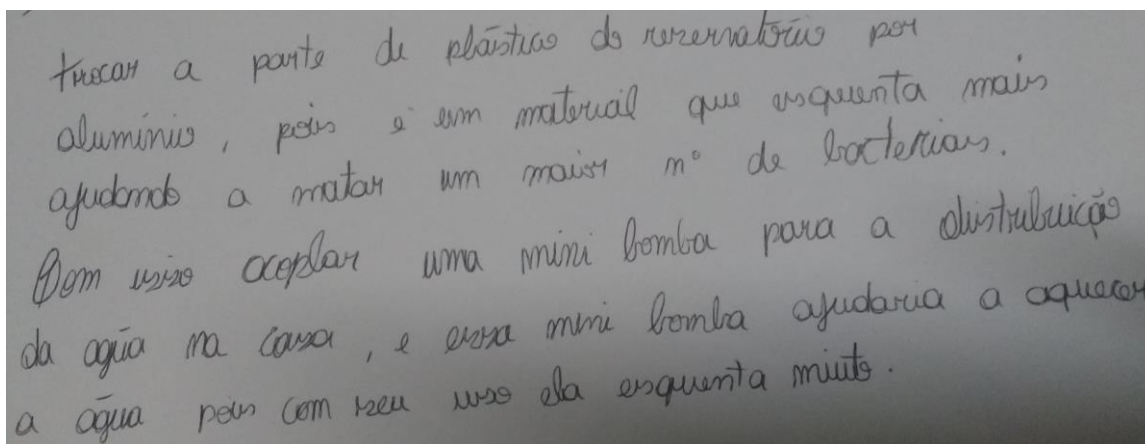 trocar a parte de plástico do reservatório por
alumínio, pois é um material que esquenta mais
ajudando a matar um maior nº de bacterias.
Com isso acoplar uma mini bomba para a distribuição
da agúa na casa, e essa mini bomba ajudaria a aquecer
a água pois com seu uso ela esquenta muito.